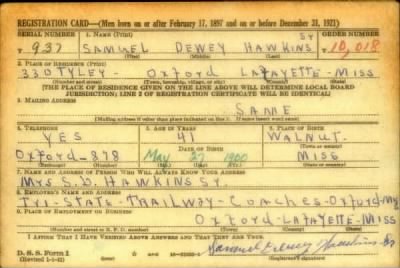 REGISTRATION CARD—(Men born on or after February 17, 1897 and on or before December 31, 1921)
SERIAL NUMBER 1. NAME (Print) ORDER NUMBER
T 937 SAMUEL DEWEY HAWKINS SY T 10,018
(First) (Middle) (Last)
2. PLACE OF RESIDENCE (Print)
330 TYLEY - Oxford LaFAYETTE - MISS
(Number and street) (Town, township, village, or city) (County) (State)
[THE PLACE OF RESIDENCE GIVEN ON THE LINE ABOVE WILL DETERMINE LOCAL BOARD
JURISDICTION; LINE 2 OF REGISTRATION CERTIFICATE WILL BE IDENTICAL]
3. MAILING ADDRESS
SAME
(Mailing address if other than place indicated on line 2. If same insert word same)
4. TELEPHONE 5. AGE IN YEARS 6. PLACE OF BIRTH
YES 41 WALNUT
DATE OF BIRTH (Town or county)
Oxford-878 May 27 1900 MISS
(Mo.) (Day) (Yr.) (State or country)
7. NAME AND ADDRESS OF PERSON WHO WILL ALWAYS KNOW YOUR ADDRESS
MYS. S. D. HAWKINS SY.
8. EMPLOYER'S NAME AND ADDRESS
TYI-STATE TRAILWAY-COACHES-OXFORD-MISS
9. PLACE OF EMPLOYMENT OR BUSINESS
OXFORD-LAFAYETTE-MISS
(Number and street or R. F. D. number) (Town) (County) (State)
I AFFIRM THAT I HAVE VERIFIED ABOVE ANSWERS AND THAT THEY ARE TRUE.
D. S. S. Form 1
(Revised 1-1-42) (over)
Samuel Dewey Hawkins Sr
(Registrant's signature)